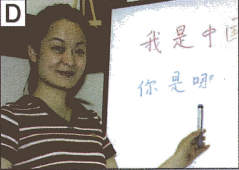 D
我是中国
你是哪